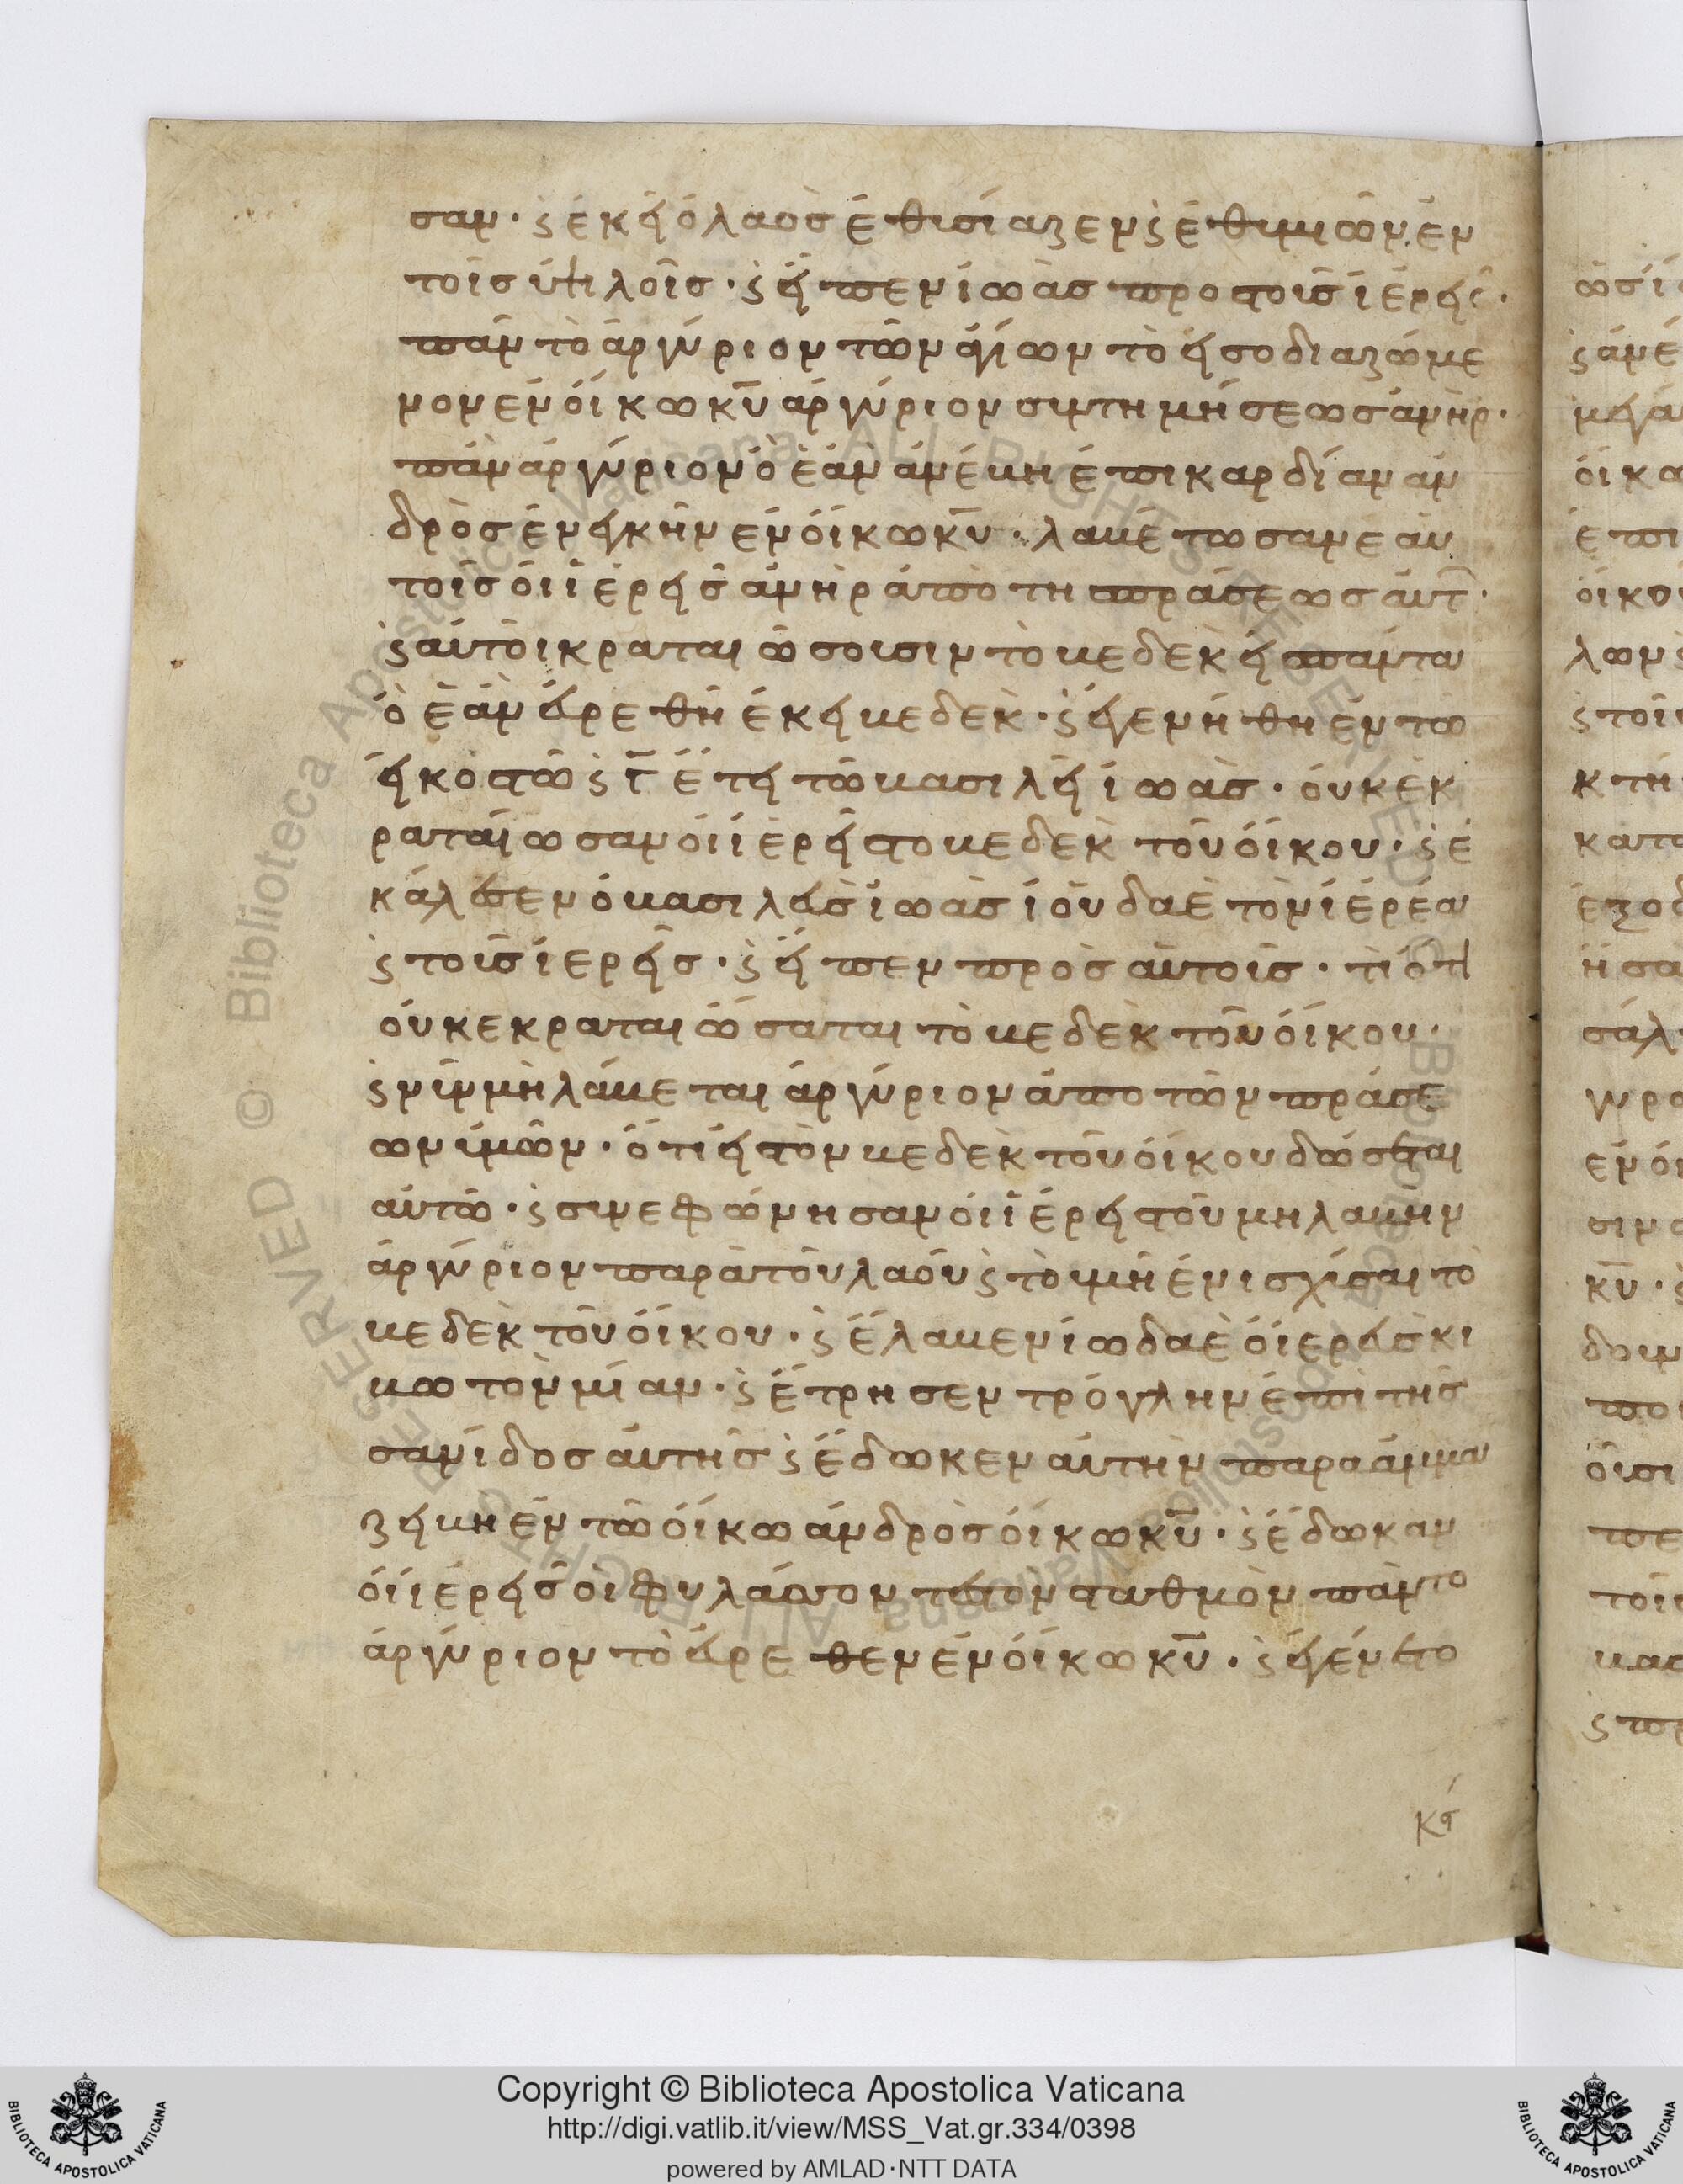 σαν· ϛ ἐκεῖ ὁ λαὸσ ἐθισίαζεν ϛ ἐθιμιῶν ἐν
τοῖσ ὑψιλοῖσ· ϛ εἶπεν ἰωὰσ προσ τοὺσ ἱέρεῖσ·
πᾶν τὸ ἀργύριον τῶν ἁγίων τὸ εἰσοδιαζώμε
νον ἐν οἴκω κῦ ἀργύριον σιντημήσεωσ ἀνὴρ·
πᾶν ἀργύριον ὁ ἐὰν ἀνέβη ἐπι καρδίαν ἀν
δρὸσ ἐνεγκῆν ἐν οἴκω κῦ· λαβέτωσαν ἑαυ
τοῖσ οἱ ἱερεῖσ ἀνὴρ ἀπὸ τη πράσεωσ ἀυτ·
ϛ αὐτοὶ κραταιώσουσιν τὸ βεδὲκ εἰσ πάντα
ὁ ἐὰν εὑρεθῆ ἐκεῖ βεδὲκ· ϛ ἐγενήθη ἐν τω
εἰκοστῶ ϛ γ ἔτει τῶ βασιλεῖ ἰωὰσ· οὐκ ἐκ
ραταίωσαν οἱ ἱερεῖσ το βεδὲκ τοῦ οἴκου· ϛ ἐ
κάλεσεν ὁ βασιλεὺσ ἰωὰσ ἰοῦδαὲ τὸν ἱερέα
ϛ τοὺσ ἱερεῖσ· ϛ εἶπεν πρὸσ αὐτοὺσ· τί ὁτι
οὐκ εκραταιώσαται τὸ βεδὲκ τοῦ οἴκου·
ϛ νῦν μὴ λάβεται ἀργύριον ἀπο τῶν πράσε
ων ὑμῶν· ὅτι εἰσ τὸν βεδὲκ τοῦ οἴκου δώσεται
αὐτῶ· ϛ σινεφώνησαν οἱ ἱερεῖσ τοῦ μη λαβην
ἀργύριον παρὰ τοῦ λαοῦ ϛ το μὴ ἐνισχύσαι τὸ
βεδὲκ τοῦ οἴκου· ϛ ἔλαβεν ἰωδαὲ ὁ ἱερεὺσ κι
βωτὸν μίαν· ϛ ἔτρησεν τρόγλην ἐπὶ τῆσ
σανίδοσ ἀυτῆσ ϛ ἔδωκεν αὐτὴν παρα ἀμμα
ζείβη ἐν τῶ οἴκω ἀνδρὸσ οἴκω κῦ· ϛ ἔδωκαν
οἱ ἱερεῖσ οἱ φυλάσσοντεσ τον σταθμὸν πᾶν το
ἀργύριον τὸ εὑρεθεν ἐν οἴκω κῦ· ϛ ἐγένετο
Copyright © Biblioteca Apostolica Vaticana
http://digi.vatlib.it/view/MSS_Vat.gr.334/0398
powered by AMLAD·NTT DATA
BIBLIOTECA APOSTOLICA VATICANA
BIBLIOTECA APOSTOLICA VATICANA